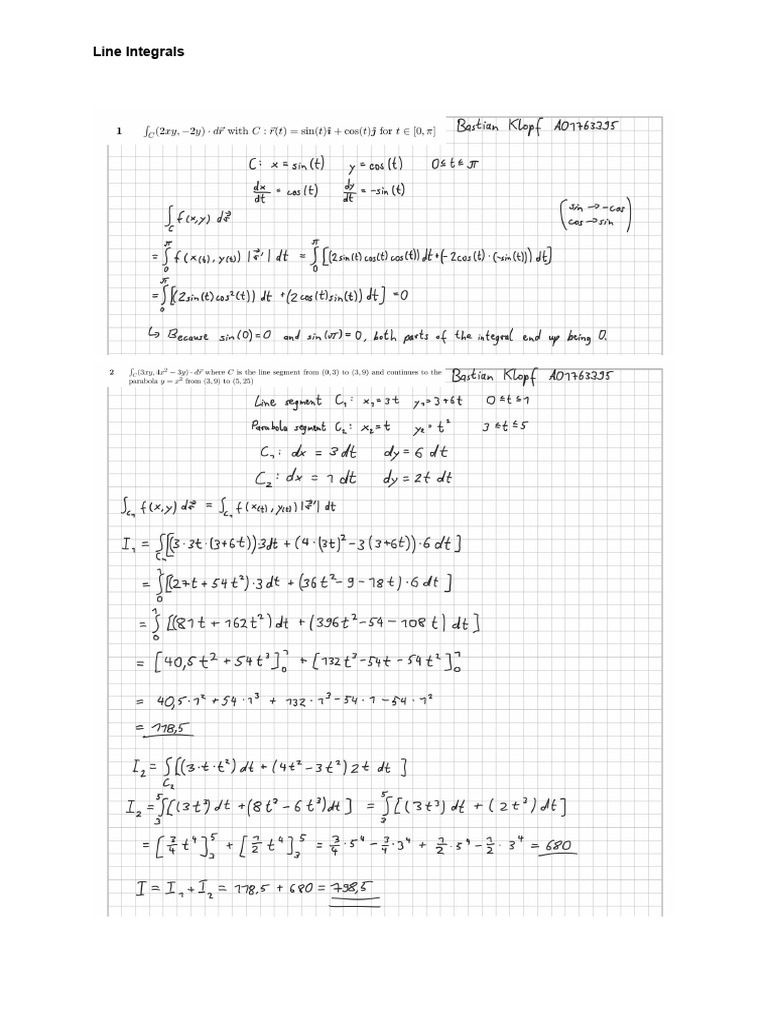 Line Integrals
1 ∫_C (2xy, −2y) · dr⃗ with C : r⃗(t) = sin(t)î + cos(t)ĵ for t ∈ [0, π] Bastian Klopf A01763395
C: x = sin(t) y = cos(t) 0 ≤ t ≤ π
dx/dt = cos(t) dy/dt = -sin(t)
∫_C f(x,y) dr⃗ (sin → -cos
cos → sin)
= ∫_0^π f(x(t), y(t)) |r⃗'| dt = ∫_0^π [(2sin(t) cos(t) cos(t)) dt + (-2cos(t) · (-sin(t))) dt]
= ∫_0^π [(2sin(t) cos²(t)) dt + (2cos(t) sin(t)) dt] = 0
↳ Because sin(0)=0 and sin(π)=0, both parts of the integral end up being 0.
2 ∫_C (3xy, 4x² − 3y) · dr⃗ where C is the line segment from (0, 3) to (3, 9) and continues to the Bastian Klopf A01763395
parabola y = x² from (3, 9) to (5, 25)
Line segment C₁: x₁=3t y₁=3+6t 0≤t≤1
Parabola segment C₂: x₂=t y₂=t² 3≤t≤5
C₁: dx = 3dt dy = 6 dt
C₂: dx = 1dt dy = 2t dt
∫_C₁ f(x,y) dr⃗ = ∫_C₁ f(x(t), y(t)) |r⃗'| dt
I₁ = ∫_C₁ [(3·3t·(3+6t))·3dt + (4·(3t)² - 3(3+6t))·6 dt]
= ∫_0^1 [(27t + 54t²)·3 dt + (36t² - 9 - 18t)·6 dt]
= ∫_0^1 [(81t + 162t²) dt + (396t² - 54 - 108t) dt]
= [40,5t² + 54t³]_0^1 + [132t³ - 54t - 54t²]_0^1
= 40,5·1² + 54·1³ + 132·1³ - 54·1 - 54·1²
= 118,5
I₂ = ∫_C₂ [(3·t·t²) dt + (4t² - 3t²) 2t dt]
I₂ = ∫_3^5 [(3t³) dt + (8t³ - 6t³) dt] = ∫_3^5 [(3t³) dt + (2t³) dt]
= [3/4 t⁴]_3^5 + [1/2 t⁴]_3^5 = 3/4·5⁴ - 3/4·3⁴ + 1/2·5⁴ - 1/2·3⁴ = 680
I = I₁ + I₂ = 118,5 + 680 = 798,5